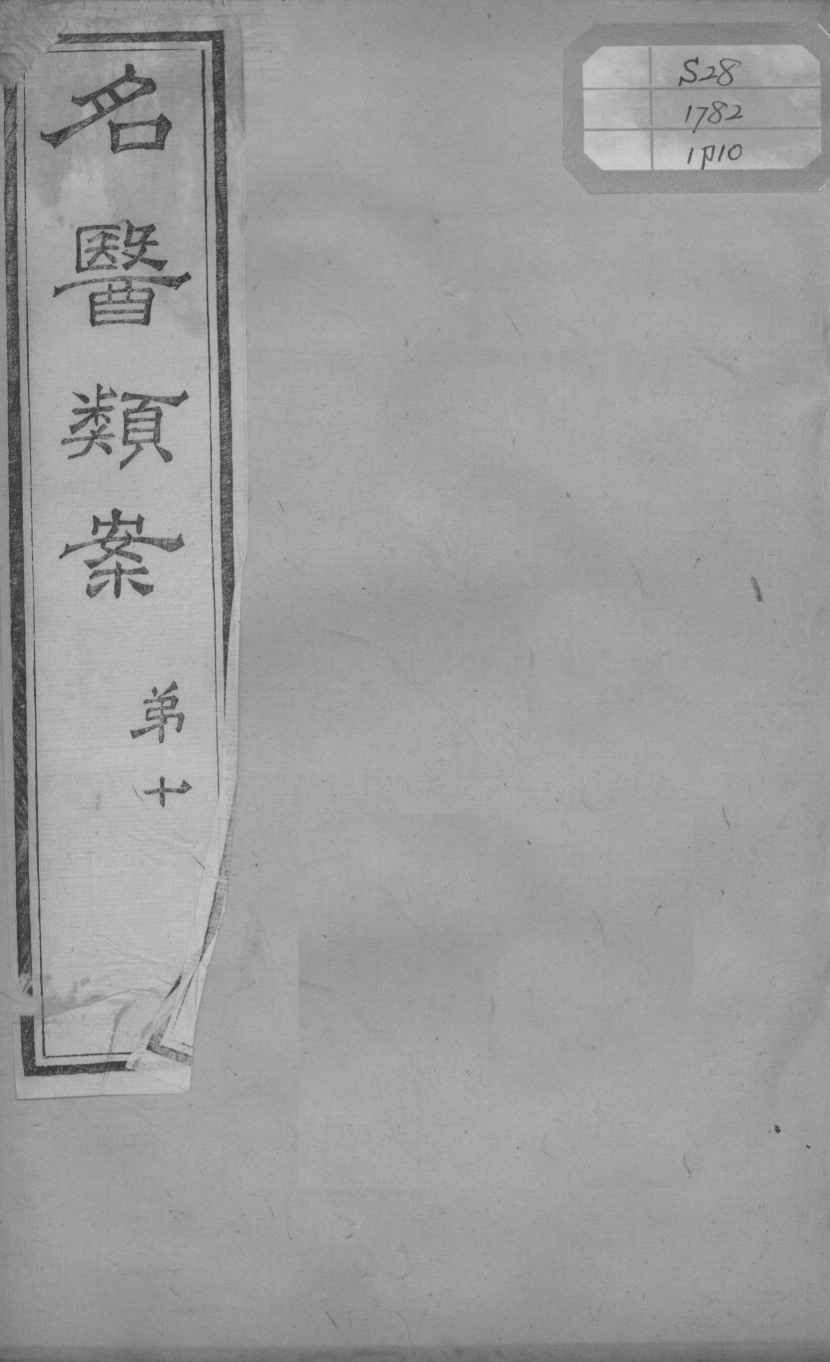 名醫類案
弟十
S28
1782
1p10